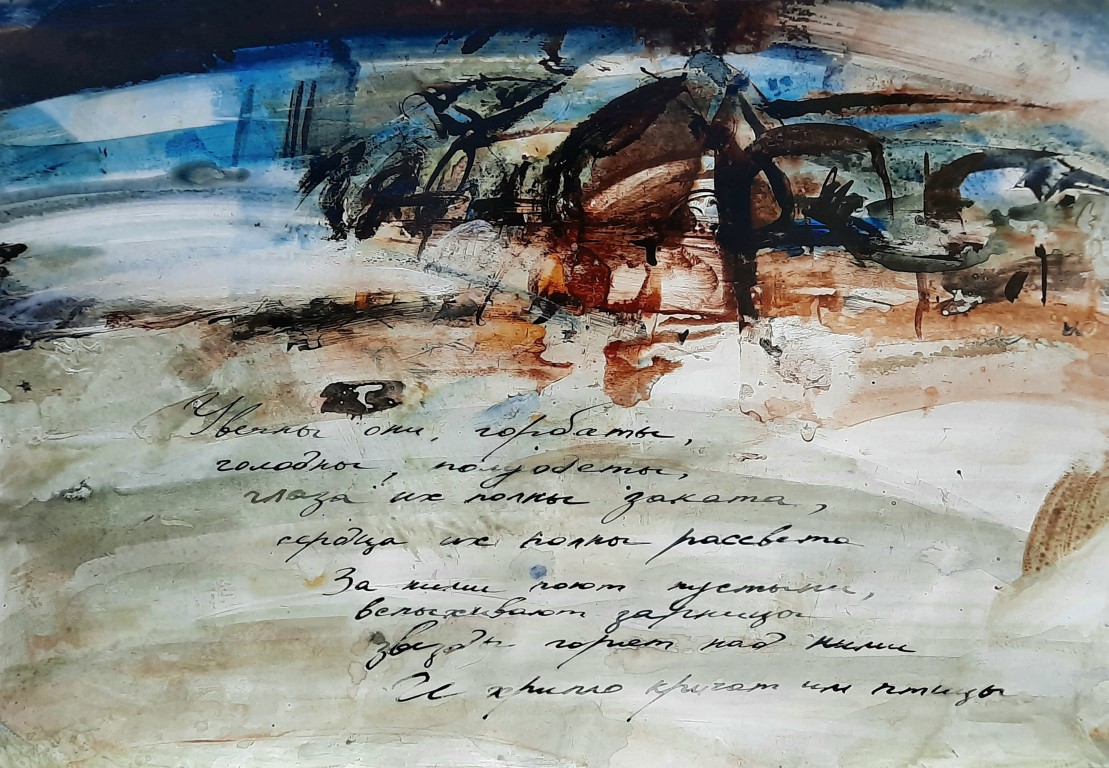 Увечны они, горбаты,
голодны, полуодеты,
глаза их полны заката,
сердца их полны рассвета
За ними поют пустыни,
вспыхивают зарницы
звезды горят над ними
И хрипло кричат им птицы